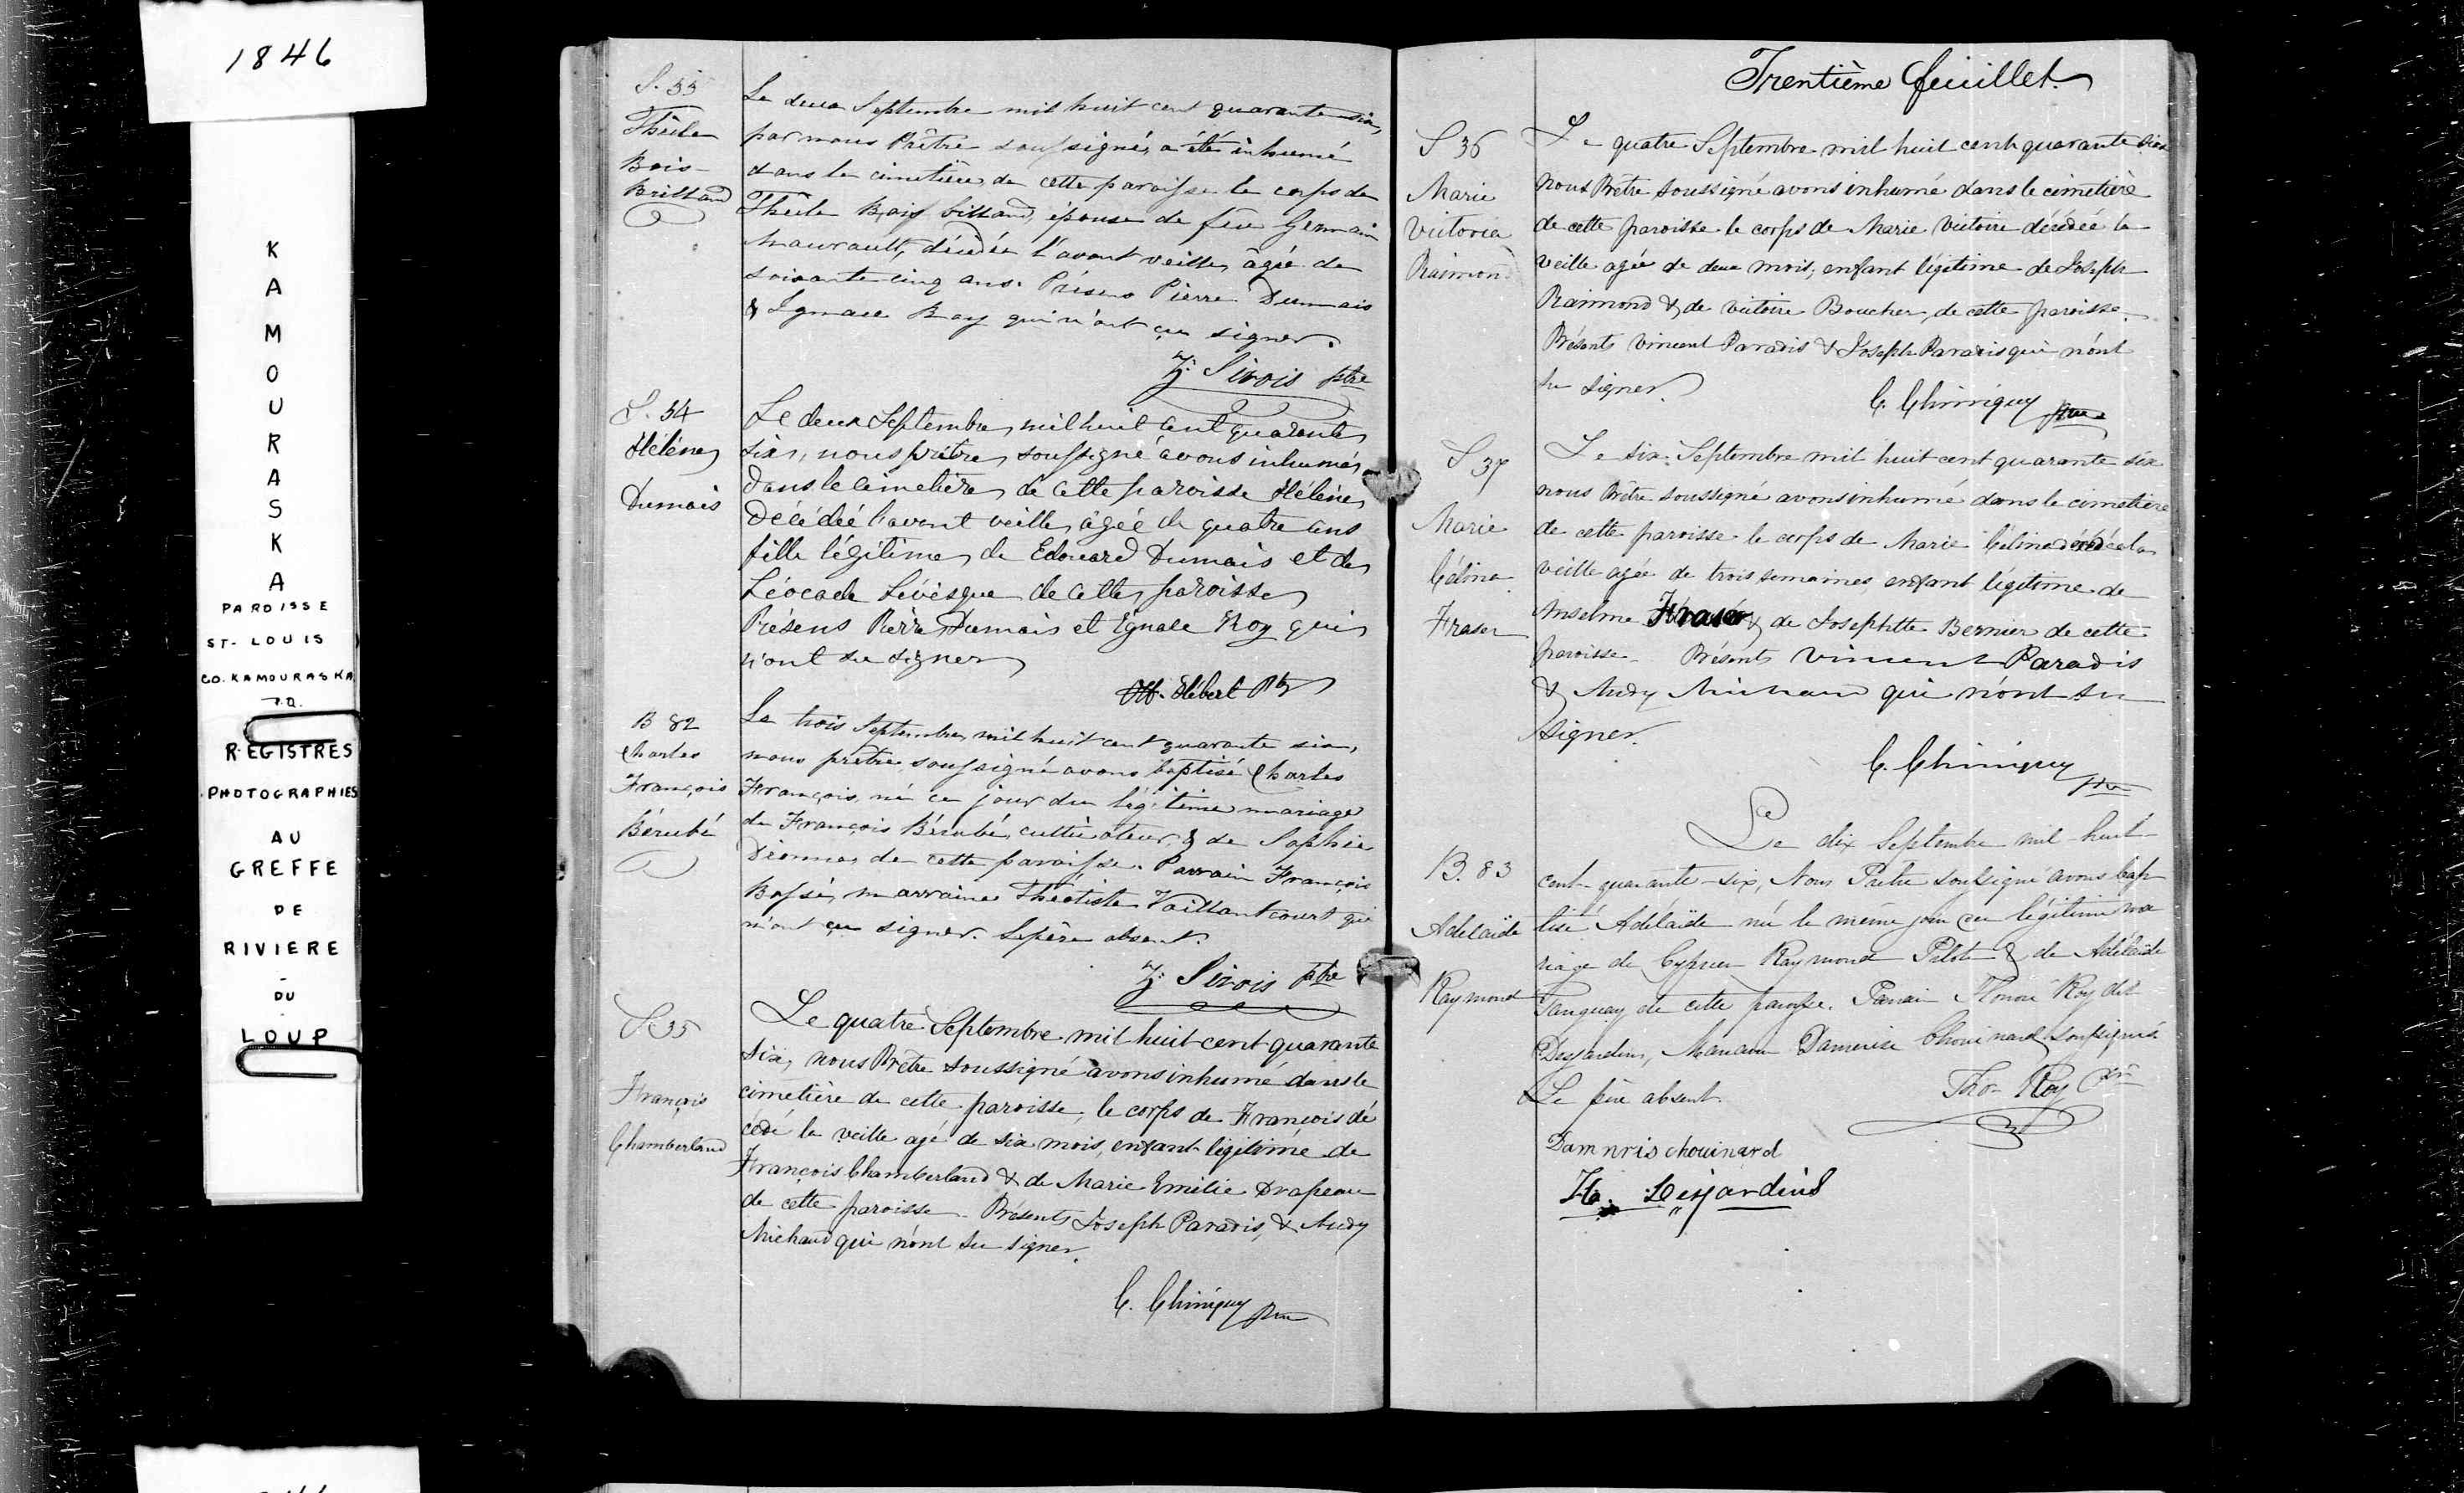 1846
KAMOURASKA
PAROISSE
ST-LOUIS
CO. KAMOURASKA
P.Q.
REGISTRES
PHOTOGRAPHIES
AU
GREFFE
DE
RIVIERE
-
DU
LOUP
S. 33
Thècle
Bois-
Brilland
Le deux Septembre mil huit cent quarante six,
par nous Prêtre soussigné, a été inhumé
dans le cimetière de cette paroisse le corps de
Thècle Bois billand, épouse de feu Germain
Maurault, décédée l'avant veille, âgée de
soixante cinq ans. Présens Pierre Dumais
& Ignace Roy qui n'ont çu signer.
Z. Sirois ptre
S. 34
Hélène
Dumais
Le deux Septembre, mil huit cent quarante
six, nous prêtre, soussigné avons inhumé,
dans le cimetière, de cette paroisse Hélène,
décédée l'avant veille, âgée de quatre ans
fille légitime, de Edouard Dumais et de
Léocade Lévèsque de cette, paroisse
Présens Pierre Dumais et Ignace Roy qui
n'ont su signer
Hébert Ptre
B 82
Charles
François
Bérubé
Le trois Septembre, mil huit cent quarante six,
nous prêtre soussigné avons baptisé Charles
François, né ce jour du légitime mariage
de François Bérubé, cultivateur, & de Sophie
Dionne, de cette paroisse. Parrain François
Bossé, marraine Théotiste Vaillantcourt qui
n'ont çu signer. Le père absent.
Z. Sirois ptre
S 35
François
Chamberland
Le quatre Septembre mil huit cent quarante
six, nous Prêtre soussigné avons inhumé dans le
cimetière de cette paroisse, le corps de François dé
cédé la veille agé de six mois, enfant légitime de
François Chamberland & de Marie Emilie Drapeau
de cette paroisse. Présents Joseph Paradis, & Audy
Michaud qui n'ont su signer.
C. Chiniquy Ptre
Trentième feuillet.
S 36
Marie
Victoria
Raimon
Le quatre Septembre mil huit cent quarante six
nous Prêtre soussigné avons inhumé dans le cimetière
de cette paroisse le corps de Marie Victoire décédée la
veille agée de deux mois; enfant légitime de Joseph
Raimond & de victoire Boucher, de cette paroisse.
Présents Vincent Paradis & Joseph Paradis qui n'ont
su signer.
C. Chiniquy ptre
S 37
Marie
Célina
Fraser
Le six Septembre mil huit cent quarante six
nous Prêtre soussigné avons inhumé dans le cimetière
de cette paroisse le corps de Marie Célina décédée la
veille agée de trois semaines, enfant légitime de
Anselme Fraser & de Josephtte Bernier de cette
paroisse. Présents Vincent Paradis
& Audy Michaud qui n'ont su
signer.
C. Chiniquy ptre
B. 83
Adelaïde
Raymond
Le dix Septembre mil huit
cent quarante-six, Nous Prêtre soussigné avons bap
tisé Adélaïde née le même jour du légitime ma
riage de Cyprien Raymond Pilote & de Adélaïde
Tanguay de cette paroisse. Parrain Honoré Roy dit
Desjardins, Marraine Damerise Chouinard soussignés
Le père absent.
Ptre
Damnris chouinard
Ho. Desjardins